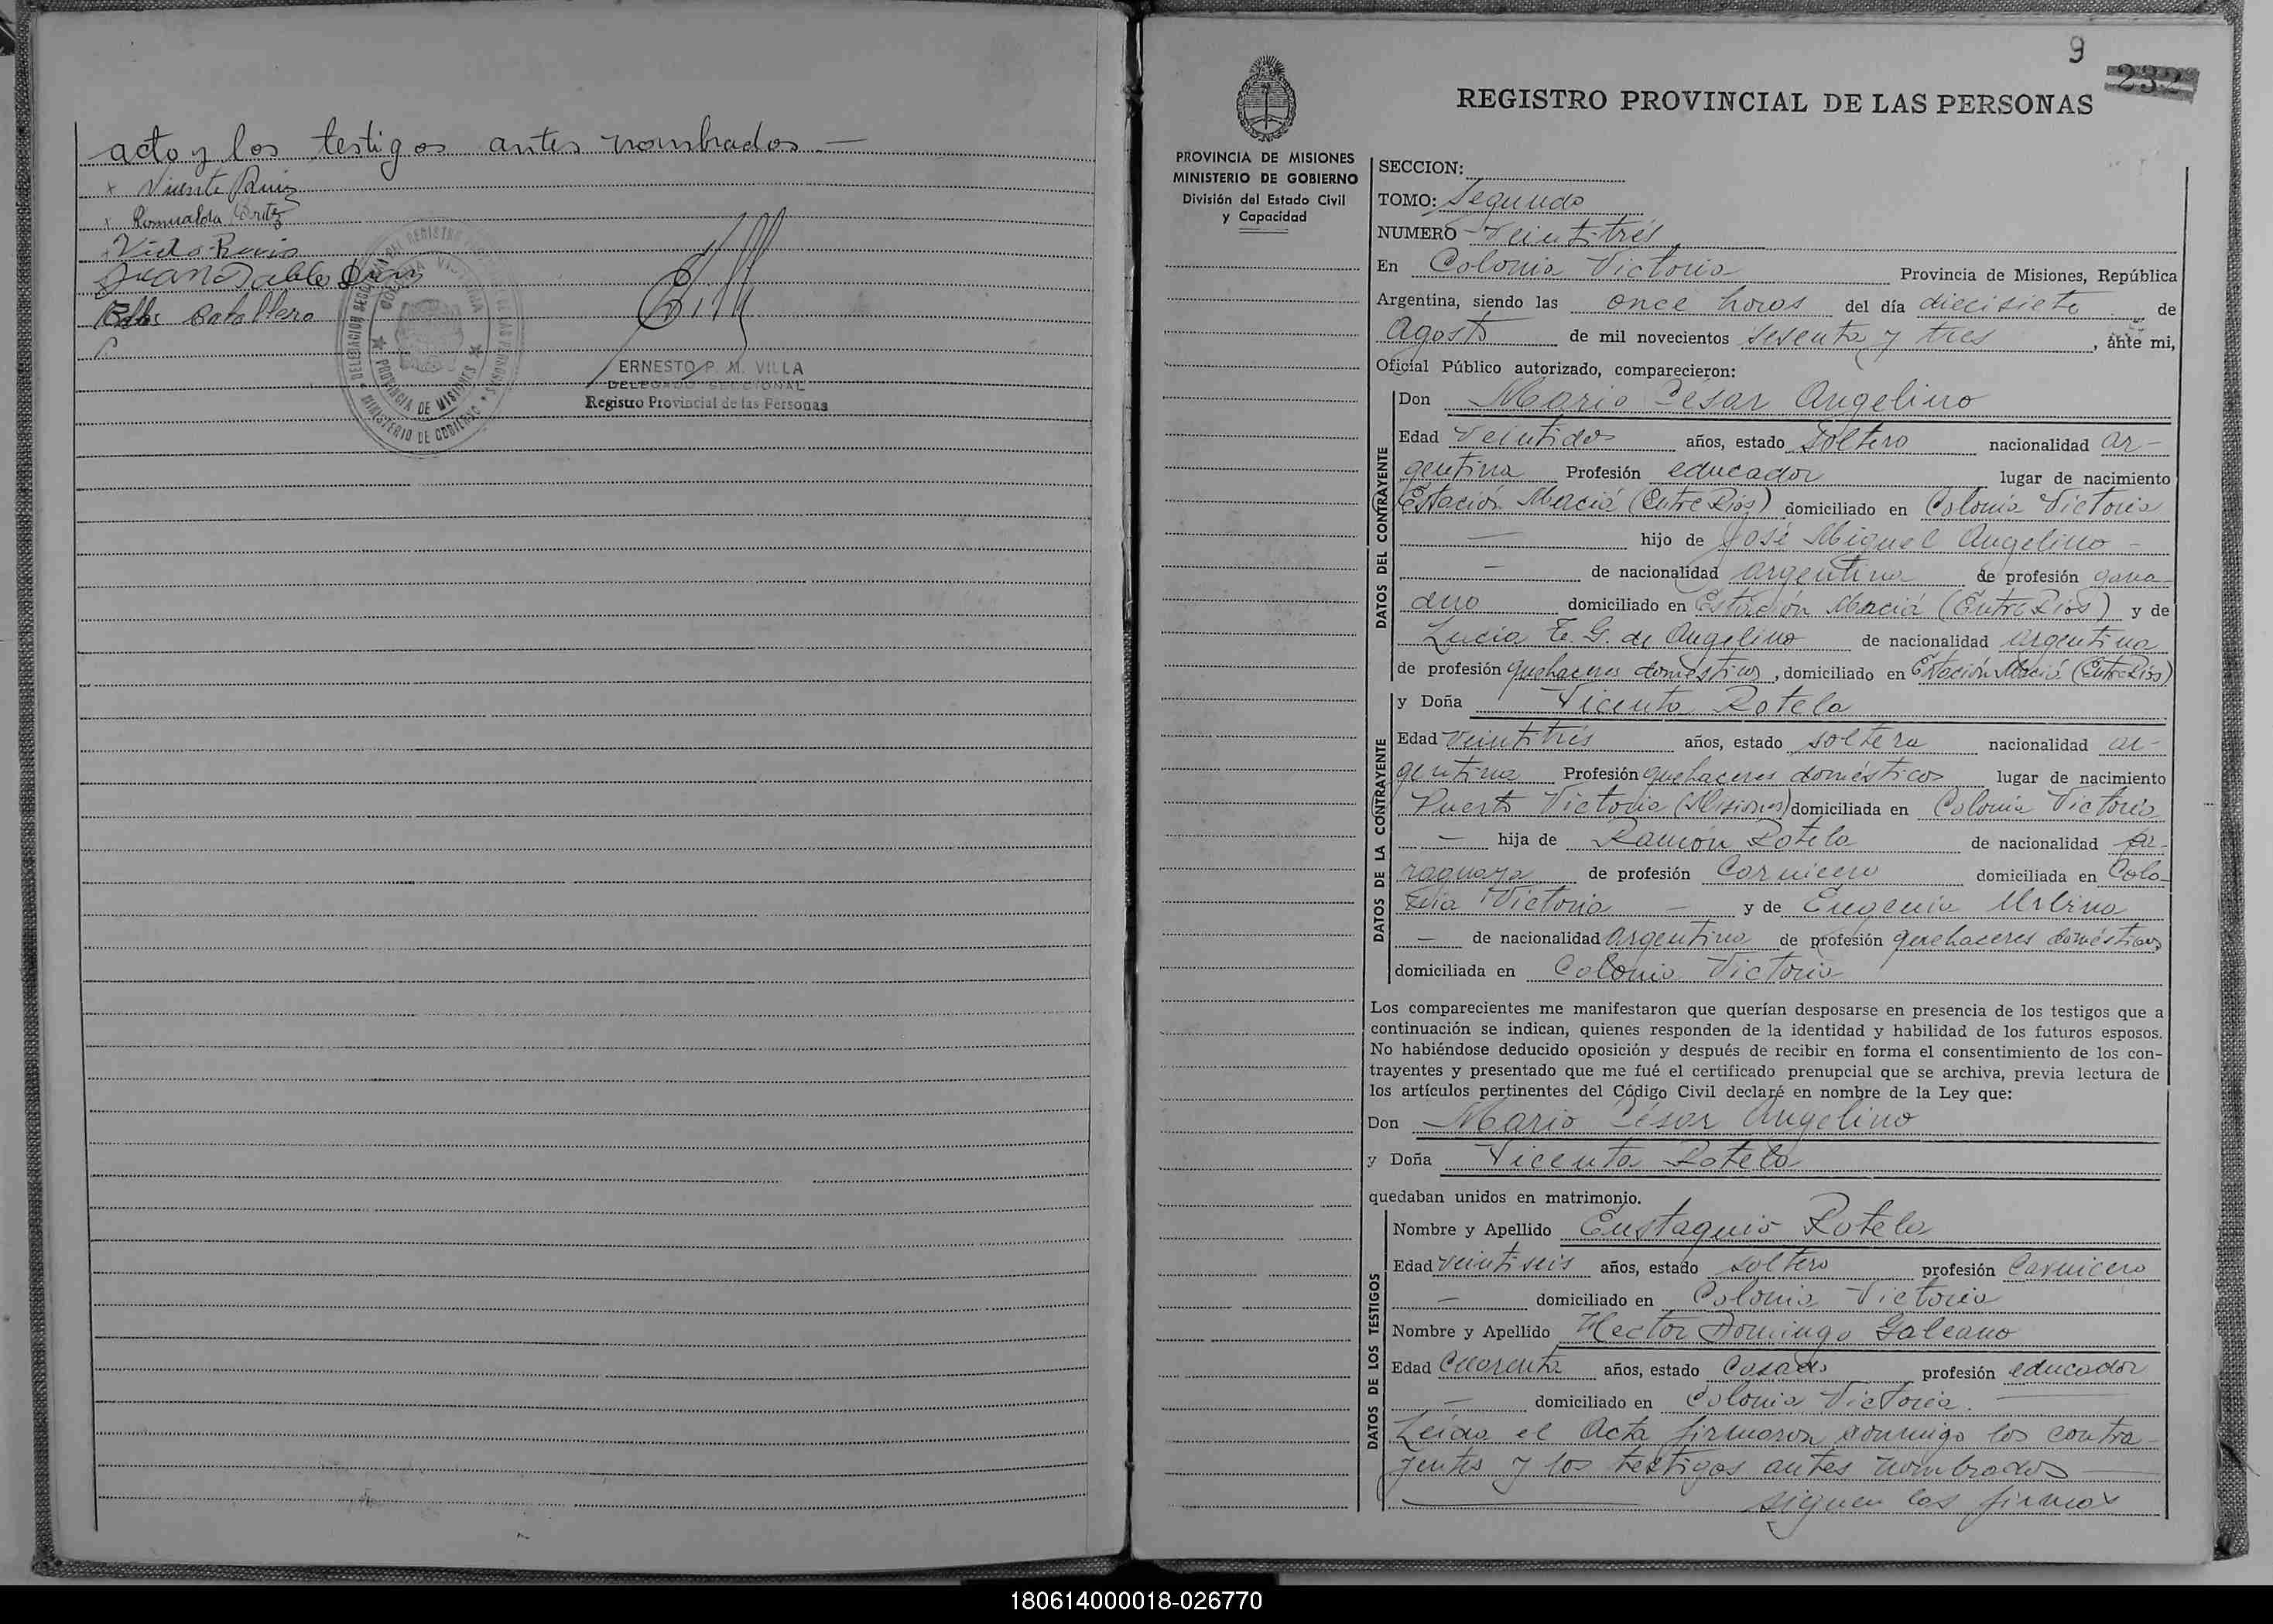 acto y los testigos antes nombrados.—
x Vicente Ruiz
x Romualda
Juan Pablo
Caballero
ERNESTO P. M. VILLA
DELEGADO SECCIONAL
Registro Provincial de las Personas
DELEGACION SECCIONAL DEL REGISTRO PROVINCIAL DE LAS PERSONAS
COLONIA VICTORIA
PROVINCIA DE MISIONES
MINISTERIO DE GOBIERNO
9
232
REGISTRO PROVINCIAL DE LAS PERSONAS
PROVINCIA DE MISIONES
MINISTERIO DE GOBIERNO
División del Estado Civil
y Capacidad
SECCION:
TOMO: Segundo
NUMERO Veintitrés
En Colonia Victoria Provincia de Misiones, República
Argentina, siendo las once horas del día diecisiete de
Agosto de mil novecientos sesenta y tres, ante mi,
Oficial Público autorizado, comparecieron:
DATOS DEL CONTRAYENTE
Don Mario César Angelino
Edad Veintidos años, estado soltero nacionalidad ar-
gentina Profesión educador lugar de nacimiento
Estación Maciá (Entre Ríos) domiciliado en Colonia Victoria
— hijo de José Miguel Angelino —
— de nacionalidad argentina de profesión gana-
dero domiciliado en Estación Maciá (Entre Ríos) y de
Lucia E. G. de Angelino de nacionalidad argentina
de profesión quehaceres domésticos, domiciliado en Estación Maciá (Entre Ríos)
DATOS DE LA CONTRAYENTE
y Doña Vicenta Rotela
Edad Veintitrés años, estado soltera nacionalidad ar-
gentina Profesión quehaceres domésticos lugar de nacimiento
Puerto Victoria (Misiones) domiciliada en Colonia Victoria
— hija de Ramón Rotela de nacionalidad pa-
raguaya de profesión Carnicero domiciliada en Colo-
nia Victoria — y de Eugenia Urbina
— de nacionalidad argentina de profesión quehaceres domésticos,
domiciliada en Colonia Victoria
Los comparecientes me manifestaron que querían desposarse en presencia de los testigos que a
continuación se indican, quienes responden de la identidad y habilidad de los futuros esposos.
No habiéndose deducido oposición y después de recibir en forma el consentimiento de los con-
trayentes y presentado que me fué el certificado prenupcial que se archiva, previa lectura de
los artículos pertinentes del Código Civil declaré en nombre de la Ley que:
Don Mario César Angelino
y Doña Vicenta Rotela
quedaban unidos en matrimonio.
DATOS DE LOS TESTIGOS
Nombre y Apellido Eustaquio Rotela
Edad veintiseis años, estado soltero profesión Carnicero
— domiciliado en Colonia Victoria
Nombre y Apellido Hector Domingo Galeano
Edad Cuarenta años, estado Casado profesión educador
— domiciliado en Colonia Victoria.
Leída el Acta firmaron conmigo los contra-
yentes y los testigos antes nombrados —
siguen las firmas
180614000018-026770